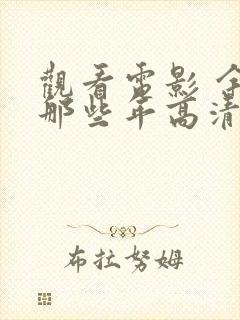 觀看電影 
那些年高清
布拉努姆